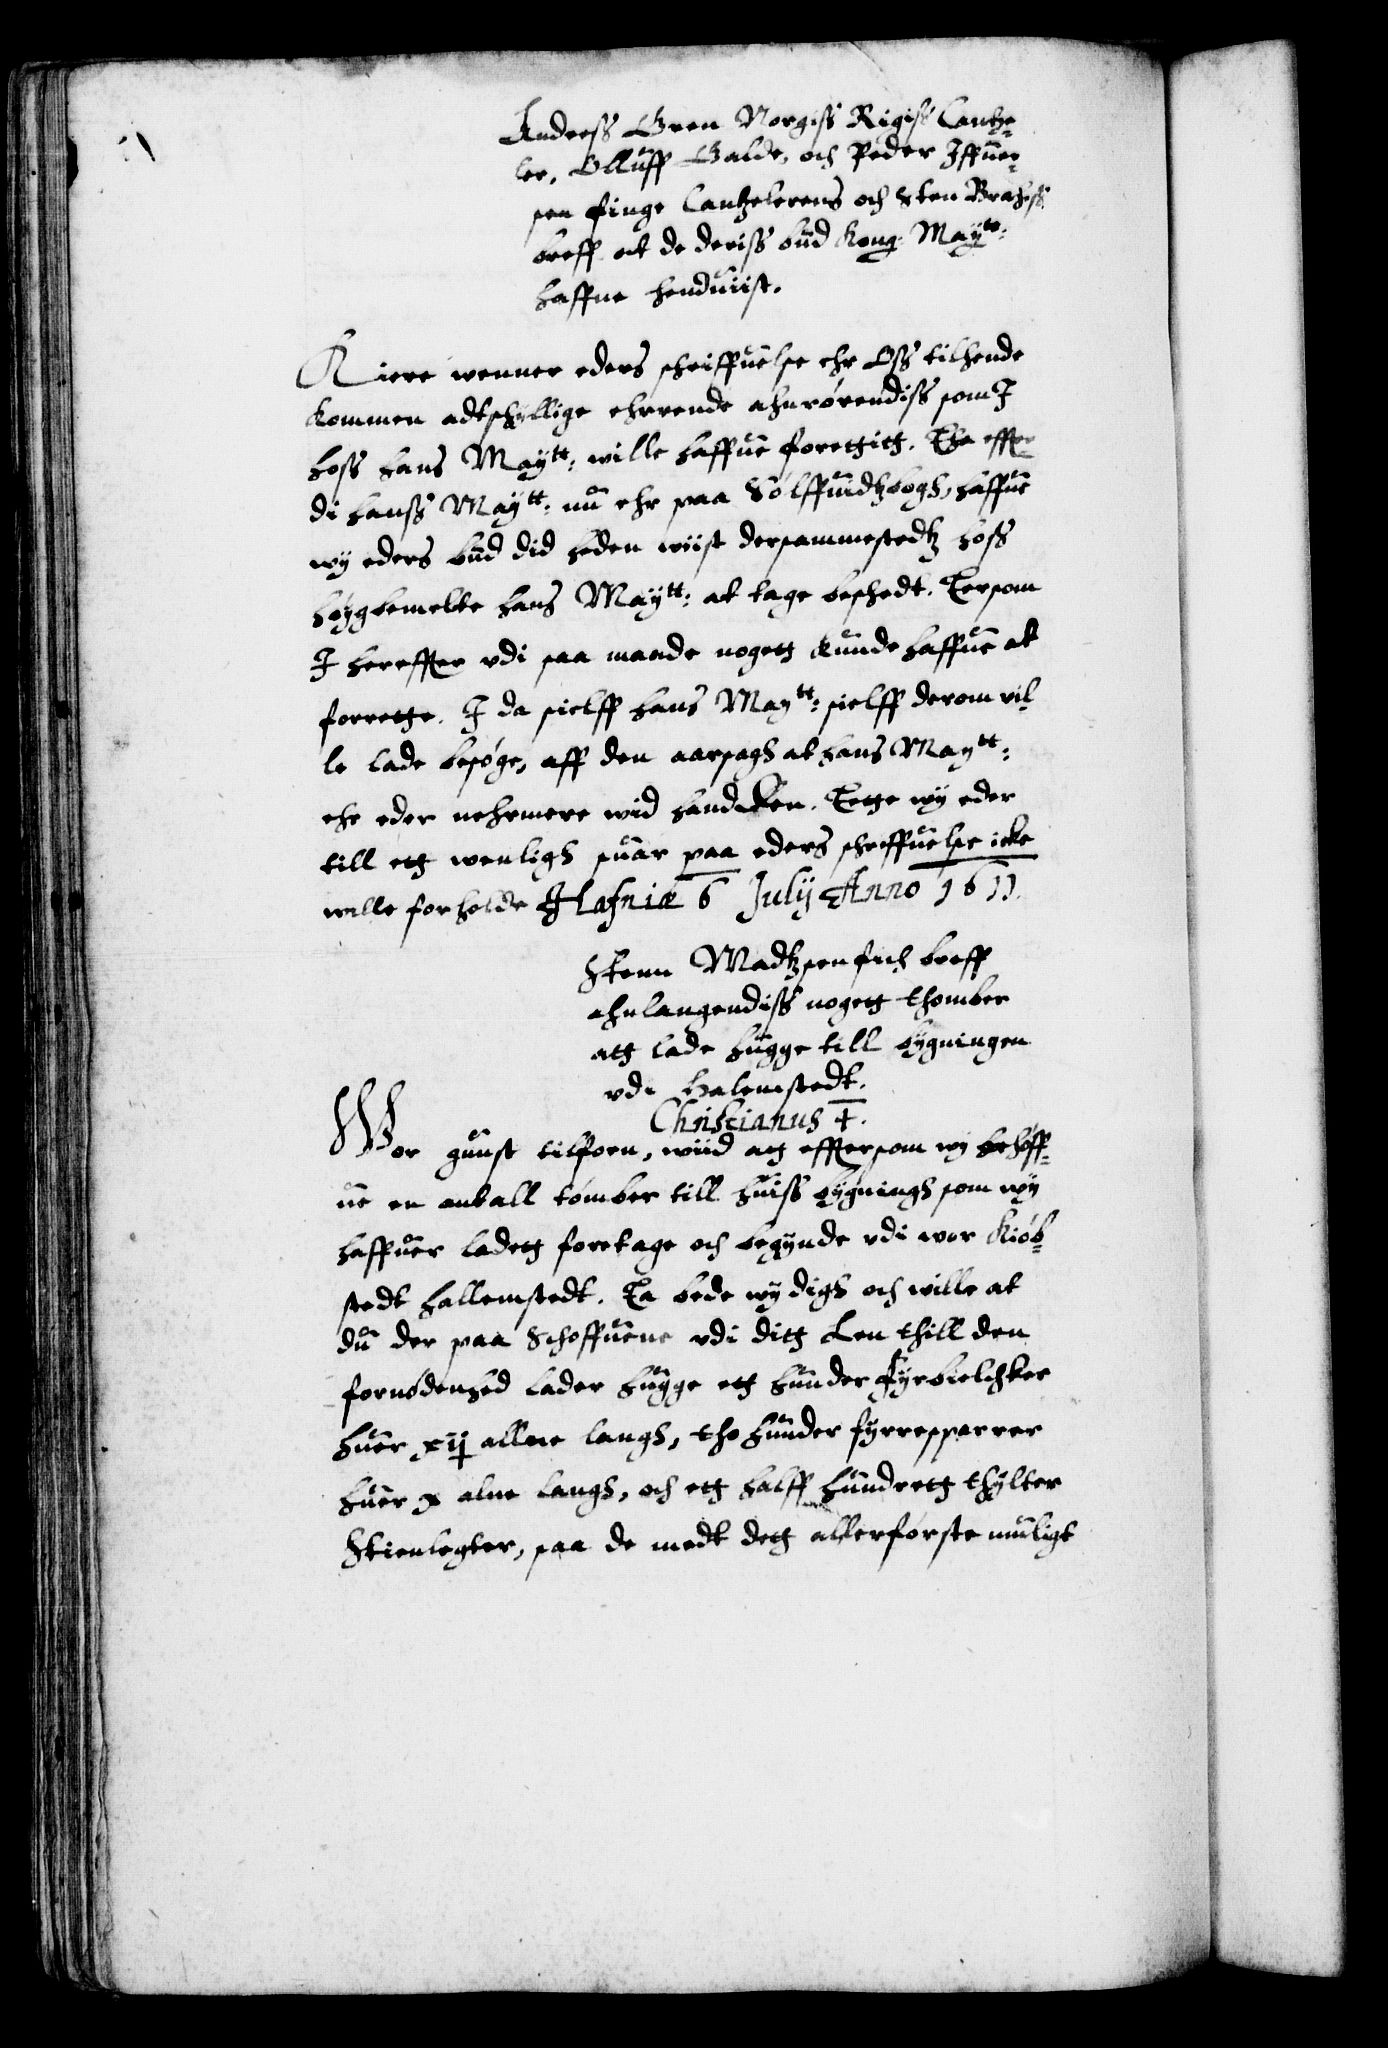 Anderss Gren Norgiss Rigiss Cantze¬
ler, Olluff Galde, och Peder Iffuer¬
sen finge Cantzelerens och Sten Brahiss
breff at de deriss bud Kong: Maytt:
haffue henduiist.
Kiere wenner eders schriffuelse ehr Oss tilhende
kommen adtschyllige ehrende ahnrørendiss som I
hoss hans Maytt: wille haffue forettgitt. Tha effter
di hanss Maytt: nu ehr paa Sølffuidtzborgh, haffue
wy eders bud did heden wiist dersammestedtz hoss
høygbemelte hans Maytt: at tage beschedt. Dersom
I hereffter vdi saa maade nogett kunde haffue at
forrette. I da sielff hans Maytt: sielff derom vil¬
le lade besøge, aff den aarsagh at hans Maytt:
ehr eder nehrmere wid handen. Dette wy eder
till ett wenligh suar paa eders schriffuelse icke
wille forholde Hafniæ 6 July Anno 1611.
Stenn Madtzsen fich breff
ahnlangendiss nogett thømber
att lade hugge till bygningen
vdi Halemstedt.
Christianus 4.
Wor gunst tilforn, wiid att efftersom wy behøff¬
ue en antall tømber till huiss bygningh som wy
haffuer ladett foretage och begynde vdi wor Kiøb¬
stedt Hallemstedt. Da bede wy digh och wille at
du der paa Schoffuene vdi ditt Len thill den
fornødenhed lader hugge ett hunder Fyrbielcker
huer xij allne langh, tho hunder fyrresparrer
huer x alne langh, och ett halff hundrett thylter
Stienlegter, saa de medt dett allerførste muligt